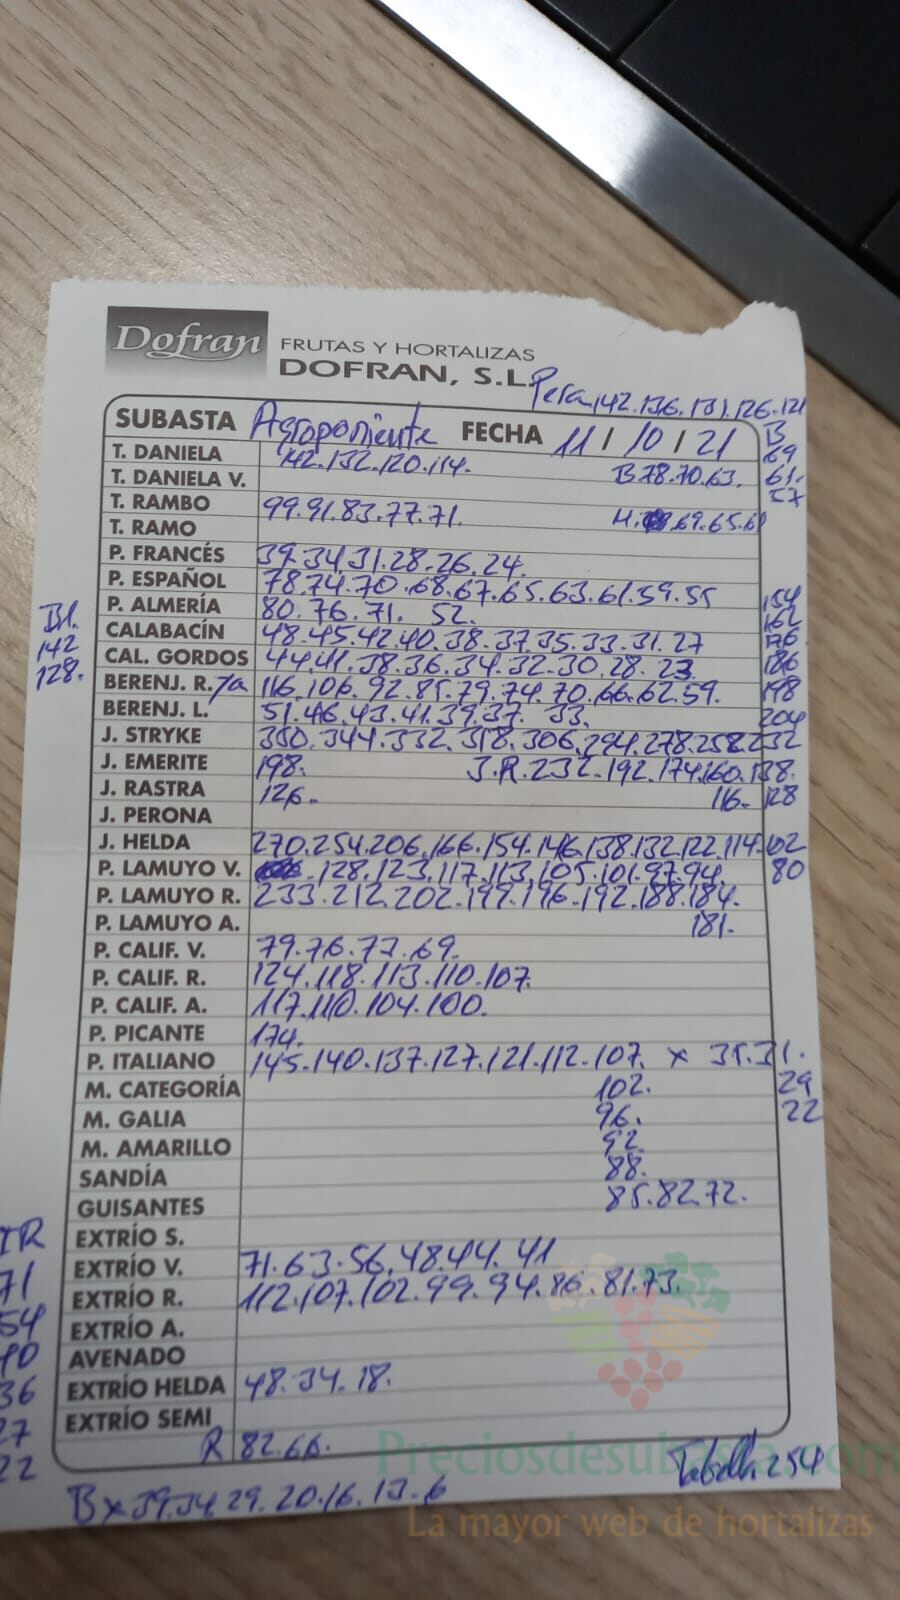 Dofran
FRUTAS Y HORTALIZAS
DOFRAN, S.L.
Pera 142.136.131.126.121
SUBASTA Agroponiente FECHA 11 / 10 / 21 B
69
T. DANELA 142.132.120.114.
T. DANIELA V. B78.70.63. 61.
57
T. RAMBO 99.91.83.77.71.
T. RAMO H. 69.65.61
P. FRANCÉS 39.34.31.28.26.24.
P. ESPAÑOL 78.74.70.68.67.65.63.61.59.55
P. ALMERÍA 80.76.71. 52.
154
162
CALABACÍN 48.45.42.40.38.37.35.33.31.27 176
CAL. GORDOS 44.41.38.36.34.32.30.28.23. 186
BERENJ. R./a 116.106.92.85.79.74.70.66.62.59. 198
BERENJ. L. 51.46.43.41.39.37. 33. 204
J. STRYKE 350.344.332.318.306.294.278.258.232
J. EMERITE 198. J.R.232.192.174.160.138.
J. RASTRA 126. 116. 128
J. PERONA
J. HELDA 270.254.206.166.154.146.138.132.122.114.102
P. LAMUYO V. 128.123.117.113.105.101.97.94. 80
P. LAMUYO R. 233.212.202.199.196.192.188.184.
P. LAMUYO A. 181.
P. CALIF. V. 79.76.73.69.
P. CALIF. R. 124.118.113.110.107.
P. CALIF. A. 117.110.104.100.
P. PICANTE 174.
P. ITALIANO 145.140.137.127.121.112.107. x 35.31.
M. CATEGORÍA 102. 29
M. GALIA 96. 22
M. AMARILLO 92.
SANDÍA 88.
GUISANTES 85.82.72.
EXTRÍO S.
EXTRÍO V. 71.63.56.48.44.41
EXTRÍO R. 112.107.102.99.94.86.81.73.
EXTRÍO A.
AVENADO
EXTRÍO HELDA 48.34.18.
EXTRÍO SEMI
R 82.66.
B x 39.34.29.20.16.13.6
254
Bl.
142
128.
IR
71
54
40
36
27
22
Preciosdesubasta.com
La mayor web de hortalizas